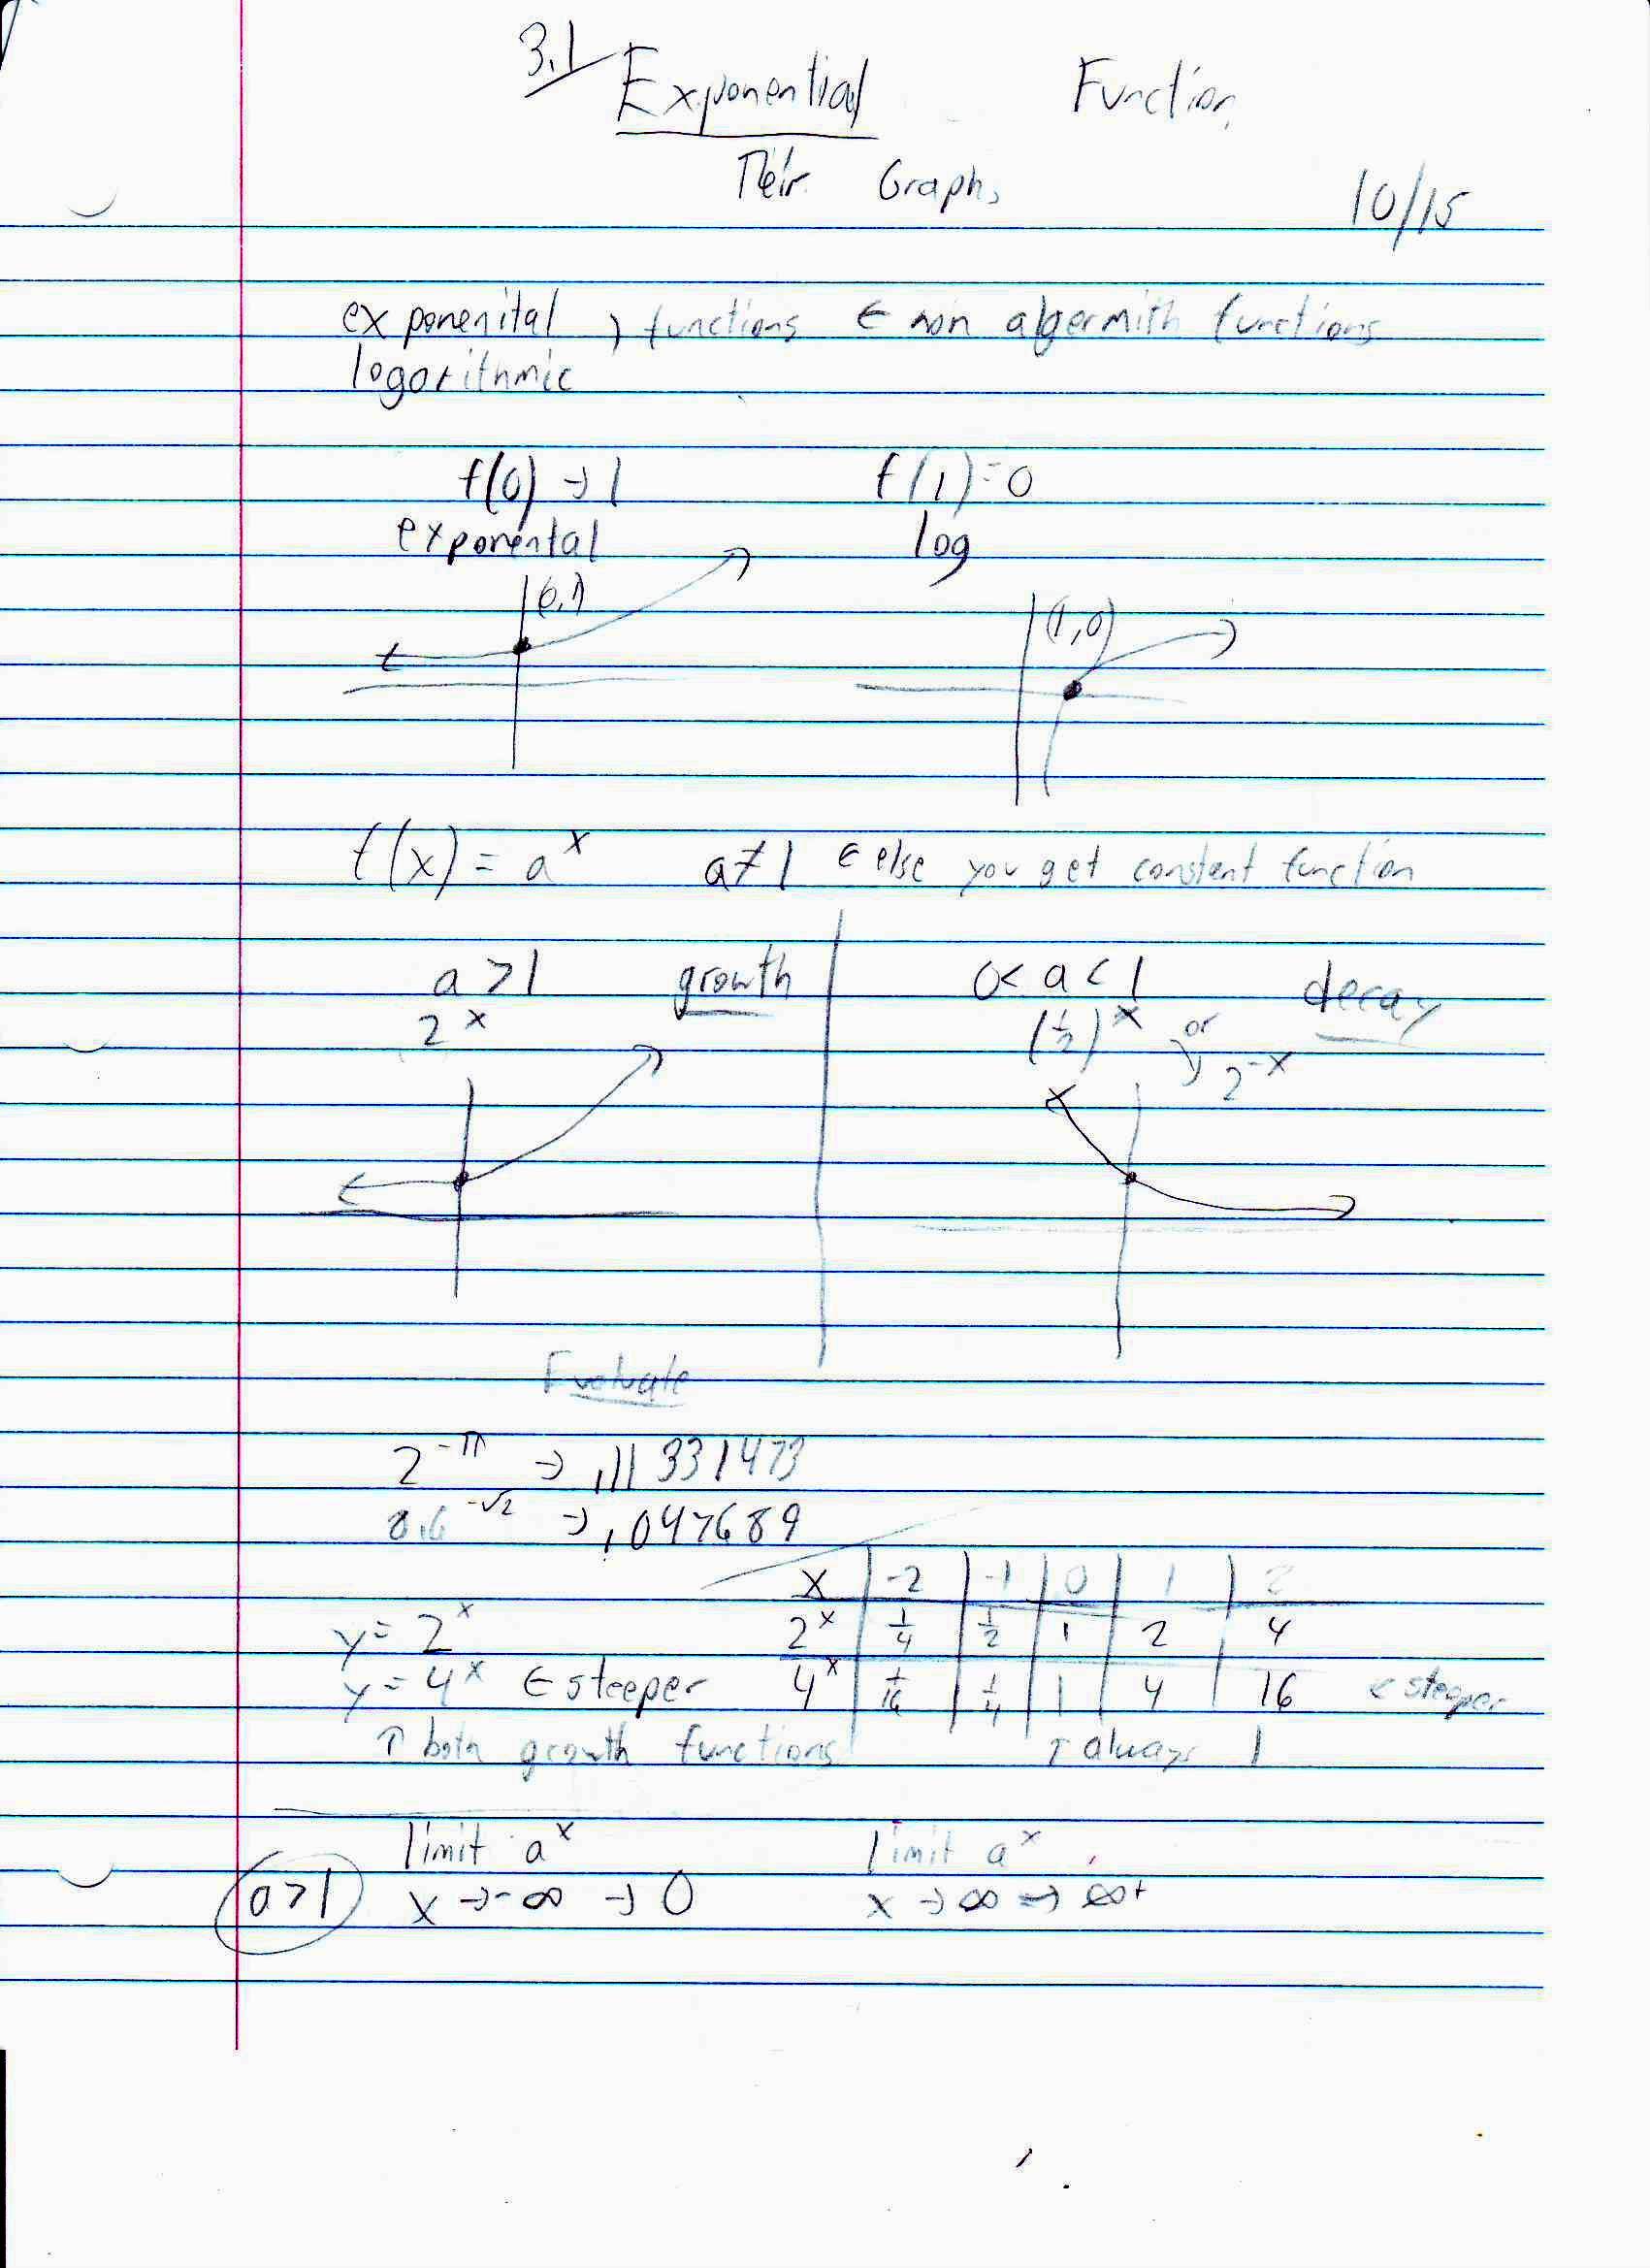 3.1 Exponential Function
Their Graphs
10/15
exponenital } functions ← non algermith functions
logorithmic
f(0) → 1 f(1) = 0
exponental log
(0,1) (1,0)
f(x) = a^x a ≠ 1 ← else you get constent function
a > 1 growth 0 < a < 1 decay
2^x (1/2)^x or
2^-x
Evaluate
2^-π → .11331473
8.6^-√2 → .047689
x -2 -1 0 1 2
y = 2^x 2^x 1/4 1/2 1 2 4
y = 4^x ← steeper 4^x 1/16 1/4 1 4 16 ← steeper
↑ both growth functions ↑ always 1
limit a^x limit a^x
a > 1 x → -∞ → 0 x → ∞ → ∞+